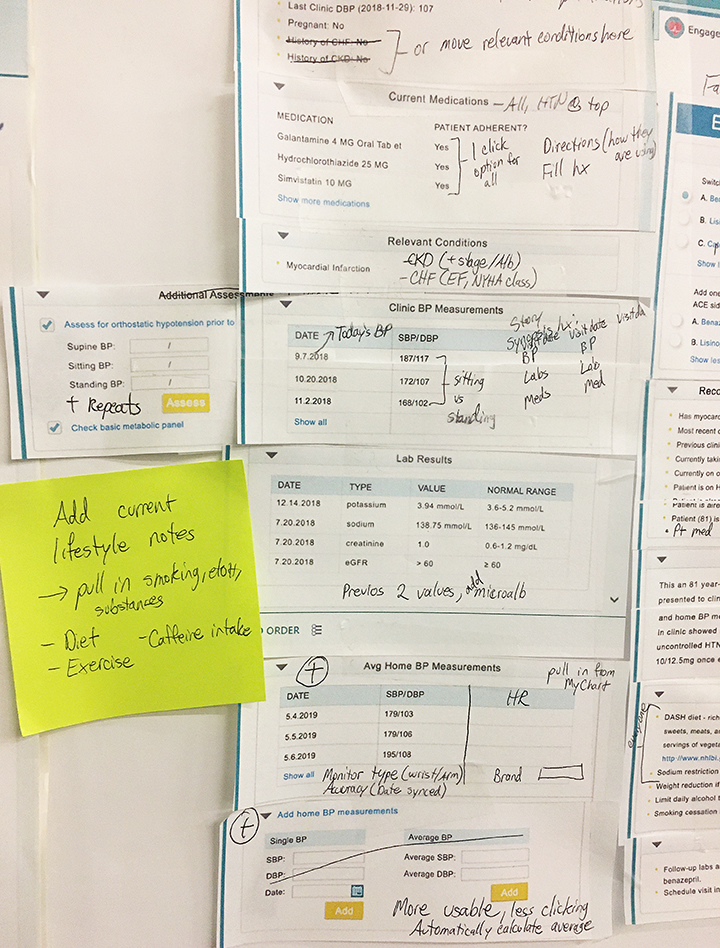 Last Clinic DBP (2018-11-29): 107
Pregnant: No
History of CHF: No
History of CKD: No
or move relevant conditions here
Current Medications – All, HTN @ top
MEDICATION PATIENT ADHERENT?
Galantamine 4 MG Oral Tab et Yes
Hydrochlorothiazide 25 MG Yes
Simvistatin 10 MG Yes
Show more medications
1 click
option for
all
Directions (how they
are using)
Fill hx
Relevant Conditions
Myocardial Infarction
- CKD (+stage/Alb)
- CHF (EF, NYHA class)
Additional Assessments
Assess for orthostatic hypotension prior to
Supine BP: /
Sitting BP: /
Standing BP: /
+ Repeats
Assess
Check basic metabolic panel
Clinic BP Measurements
DATE Today's BP SBP/DBP
9.7.2018 187/117
10.20.2018 172/107
11.2.2018 168/102
Show all
sitting
vs
standing
Story
Synopsis hx:
visit date visit date visit da
BP BP
Labs Lab
meds med
Lab Results
DATE TYPE VALUE NORMAL RANGE
12.14.2018 potassium 3.94 mmol/L 3.6-5.2 mmol/L
7.20.2018 sodium 138.75 mmol/L 136-145 mmol/L
7.20.2018 creatinine 1.0 0.6-1.2 mg/dL
7.20.2018 eGFR > 60 ≥ 60
Previos 2 values, add microalb
ORDER
Add current
lifestyle notes
→ pull in smoking, etoh,
substances
- Diet - Caffeine intake
- Exercise
+
Avg Home BP Measurements
pull in from
MyChart
DATE SBP/DBP HR
5.4.2019 179/103
5.5.2019 179/106
5.6.2019 195/108
Show all
Monitor type (wrist/Arm) Brand
Accuracy (Date synced)
+
Add home BP measurements
Single BP Average BP
SBP: Average SBP:
DBP: Average DBP:
Date:
Add Add
More usable, less clicking
Automatically calculate average
Engage
Fa
E
Switc
A. Be
B. Lis
C. Ca
Show l
Add one
ACE side
A. Benaz
B. Lisino
Show les
Reco
Has myocar
Most recent c
Previous clini
Currently taki
Currently on o
Patient is on H
Patient is aire
Patient (81) is
• Pt med
This an 81 year-
presented to clin
and home BP me
in clinic showed
uncontrolled HTN
10/12.5mg once
everyone
DASH diet - rich
sweets, meats, a
servings of vegeta
http://www.nhlbi.
Sodium restriction
Weight reduction if
Limit daily alcohol t
Smoking cessation
Follow-up labs a
benazepril.
Schedule visit in